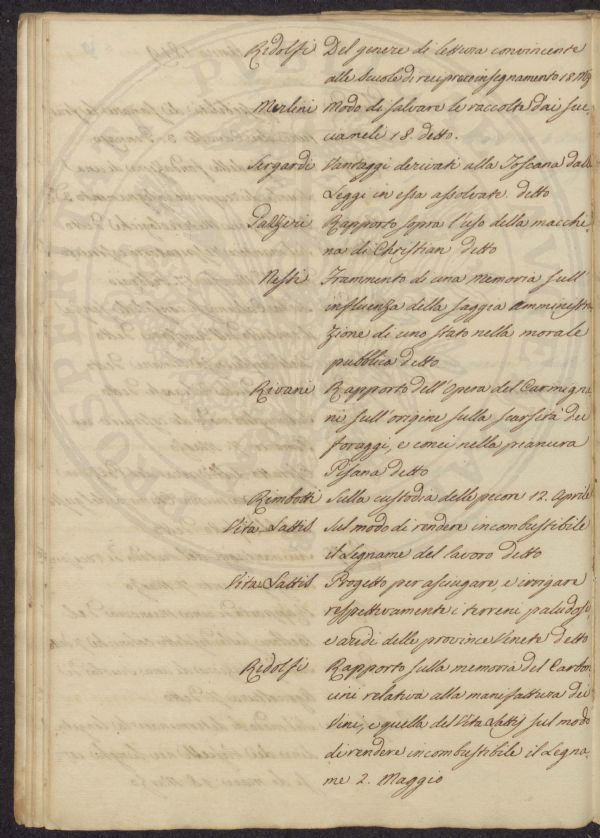 Ridolfi Del genere di lettura convincente
alle Scuole di reciproco insegnamento 18. Mgo
Merlini Modo di salvare le raccolte dai suc
cianeli 18. detto.
Sergardi Vantaggi derivati alla Toscana dalle
Leggi in essa assolvate detto
Rapporto sopra l'uso della macchi=
na di Christian detto
Nesti Frammento di una memoria sull'
influenza della saggia amministra
zione di uno stato nella morale
pubblica detto
Rivani Rapporto dell'Opera del Carmigna
ni sull'origine sulla scarsità dei
foraggi, e conci nella pianura
Pisana detto
Rimbotti Sulla custodia delle pecore 12. Aprile
Vita=Lattis Sul modo di rendere incombustibile
il Legname del lavoro detto
Vita=Lattis Progetto per asciugare, e irrigare
respettivamente i terreni paludosi,
e aridi delle province Venete detto
Ridolfi Rapporto sulla memoria del Carbon
cini relativa alla manifattura dei
Vini, e quella del Vita Lattis sul modo
di rendere incombustibile il Legna=
me 2. Maggio